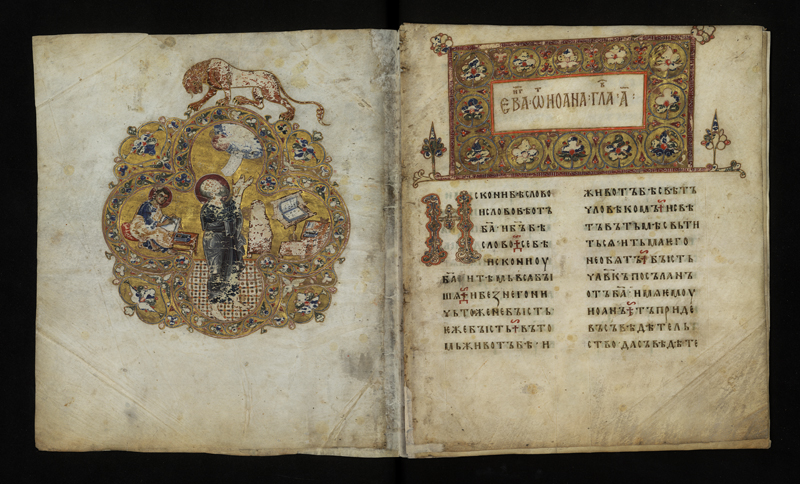 ЕВА҃ · Ѿ ИОАНА · ГЛА · А҃ :
ИСКОНИБѢСЛОВО
ИСЛОВОБѢОТЪ
БА҃ · ИБЪ҃БѢ
СЛОВО · СЕБѢ
ИСКОНИОУ
БА҃ · ИТѢМЬВСѦБЫ
ШѦ · ИБЕЗНЕГОНИ
ЧЬТОЖЕНЕБЫСТЬ
ѤЖЕБЫСТЬ · ВЪТО
МЬЖИВОТЪБѢ · И
ЖИВОТЪБѢСВѢТЪ
ЧЛОВѢКОМЪ · ИСВѢ
ТЪВЪТЬМѢСВЬТИ
ТЬСѦ · ИТЬМАѤГО
НЕОБѦТЪ · БЫСТЬ
ЧЛ҃ВКЪПОСЪЛАНЪ
ОТЪБА҃ · ИМѦѤМОУ
ИОАНЪ · ТЪПРИДЕ
ВЪСЪВѢДѢТЕЛЬ
СТВО · ДАСЪВѢДѢТЕ